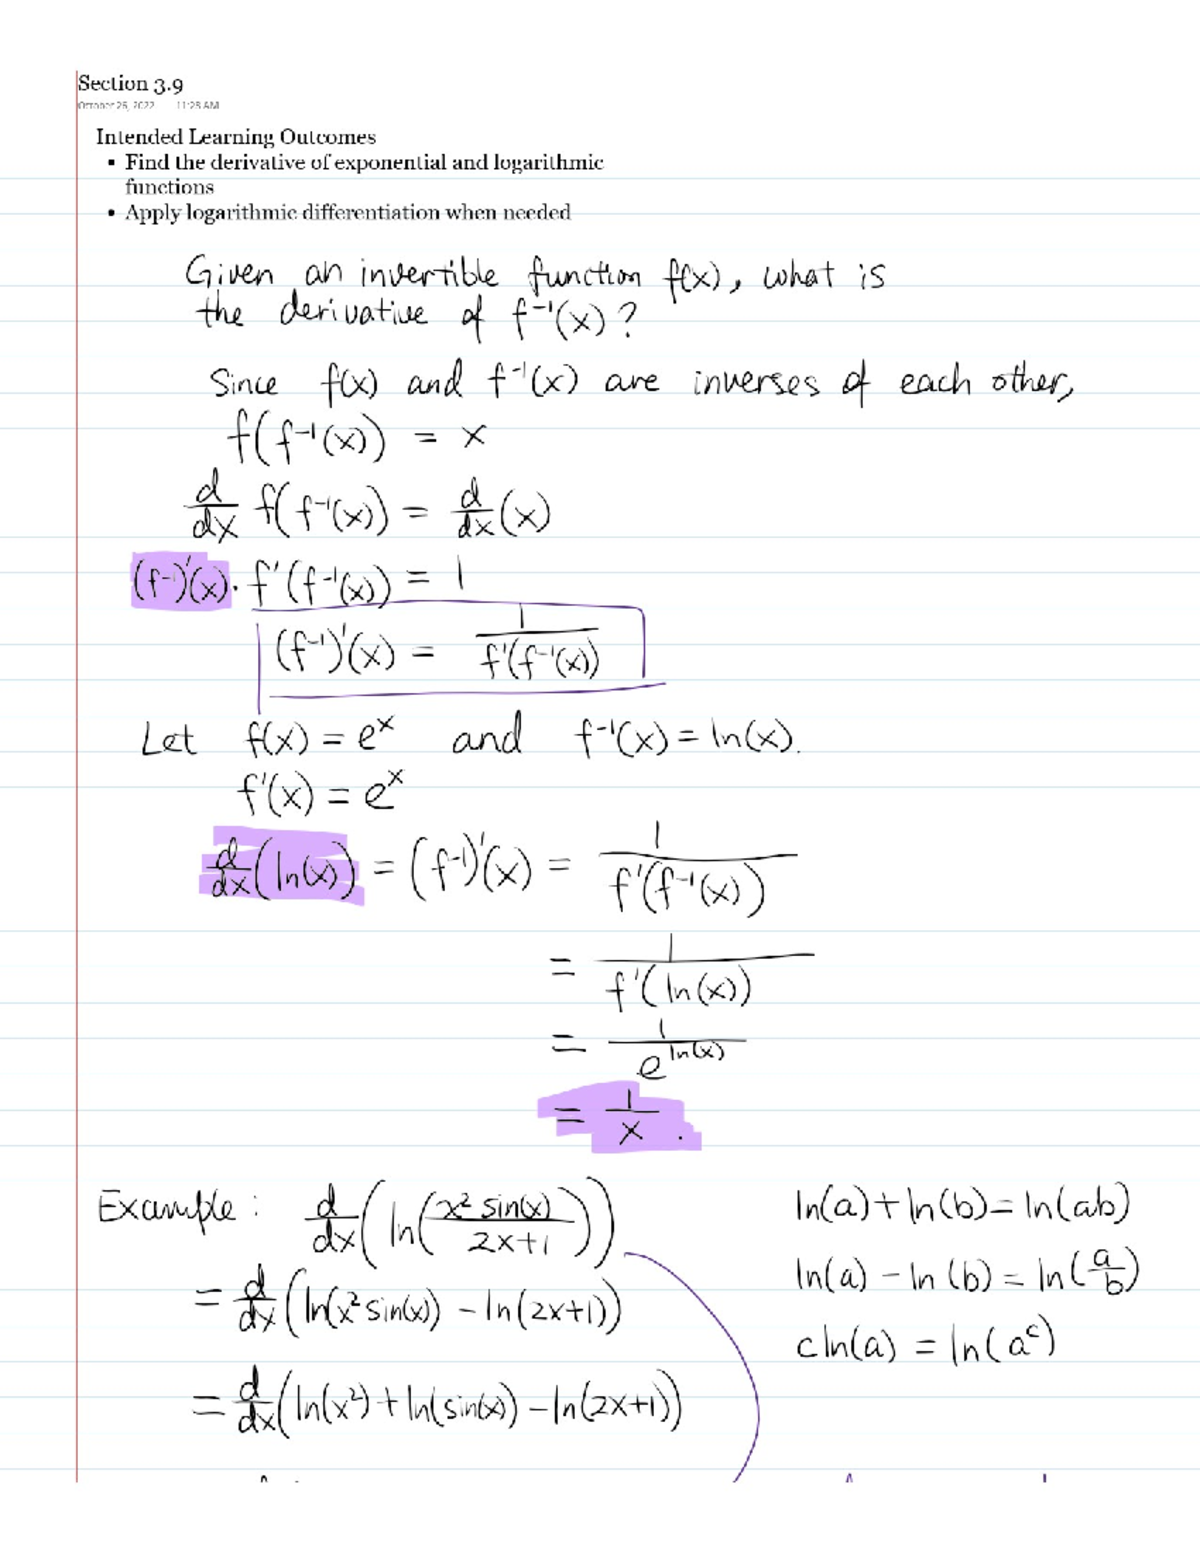 Section 3.9
October 26, 2022 11:28 AM
Intended Learning Outcomes
▪ Find the derivative of exponential and logarithmic
functions
• Apply logarithmic differentiation when needed
Given an invertible function f(x), what is
the derivative of f⁻¹(x)?
Since f(x) and f⁻¹(x) are inverses of each other,
f(f⁻¹(x)) = x
d/dx f(f⁻¹(x)) = d/dx (x)
(f⁻¹)'(x) · f'(f⁻¹(x)) = 1
(f⁻¹)'(x) = 1/f'(f⁻¹(x))
Let f(x) = eˣ and f⁻¹(x) = ln(x).
f'(x) = eˣ
d/dx (ln(x)) = (f⁻¹)'(x) = 1/f'(f⁻¹(x))
= 1/f'(ln(x))
= 1/e^ln(x)
= 1/x.
Example: d/dx (ln(x² sin(x)/2x+1))
ln(a) + ln(b) = ln(ab)
= d/dx (ln(x² sin(x)) − ln(2x+1))
ln(a) − ln(b) = ln(a/b)
c ln(a) = ln(aᶜ)
= d/dx (ln(x²) + ln(sin(x)) − ln(2x+1))